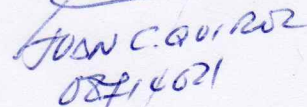 JUAN C. QUIROZ
08714021